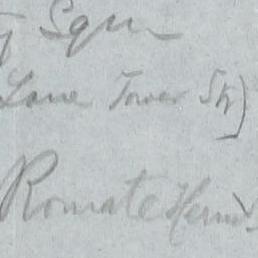 Squ
Lane Tower St)
Romate